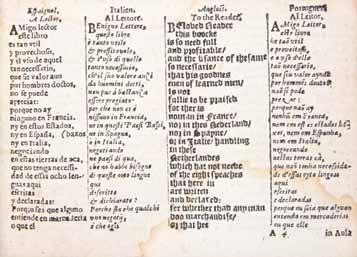 Espaignol,
A Lector,
AMigo lector
este libro
es tan vtil
y prouechoso,
y el vso de aquel
tan necessario,
que su valor aun
por hombres doctos,
no se puede
apreciar:
porque no ay
ninguno en Francia.
ny en estos Estados,
ny en España,
ny en Italia,
negociando
en estas tierras de aca,
que no tenga necessidad
de essas ocho lenguas
que aqui
escritas
y declaradas:
Porque sea que alguno
entiende en marcaderia
o que el
Italien.
Al Lettore.
BEnigno Lettore,
questo libro
è tanto vtile
& profitteuole,
& l'vso di quello
tanto necessario,
ch'el suo valore
da huomini dotti,
non può à bastanza
essere prezzato:
per che non ci è
nissuno in Francia,
ne in questi Paesi Bassi,
ne in Spagna,
o in Italia,
negotiando
ne paesi di qua,
che no habbi bisogno
di queste otto lingue
qui
descritte
& dichiarate:
Perche sia che qualche
vn negotij,
ò che egli
Anglois.
To the Reader.
BEloved Reader
this boocke
is so need full
and profitable,
and the vsance of thesame
so necessarie,
that his goodnes
euen of learned men,
is not
fullie to be praised
for ther is
noman in France,
nor in thes Nederland,
nor in Spayne,
or in Italie, handling
in these
Netherlandes
which hat not neede
of the eight speaches
that here in
are writen
and declared:
For whether that any man
doo marchandise,
or that hee
Portugues
Al Leitor.
AMigo leitor,
este liuro
he tam vtil
e proueitoso,
e o vso delle
tam necessario,
que seu valor aynda
por homens doutos,
naõ se pode
porque naõ ay
nenhum em França,
nem em estes Estados,
nem em Espanha,
nem em Italia,
negoceando
nestas terras
que naõ tenha necessidade
de estas oyto lingoas
que aqui
escritas
e declaradas:
Porque ou que alguem
entenda em mercaderias
ou que elle
A
in Aula